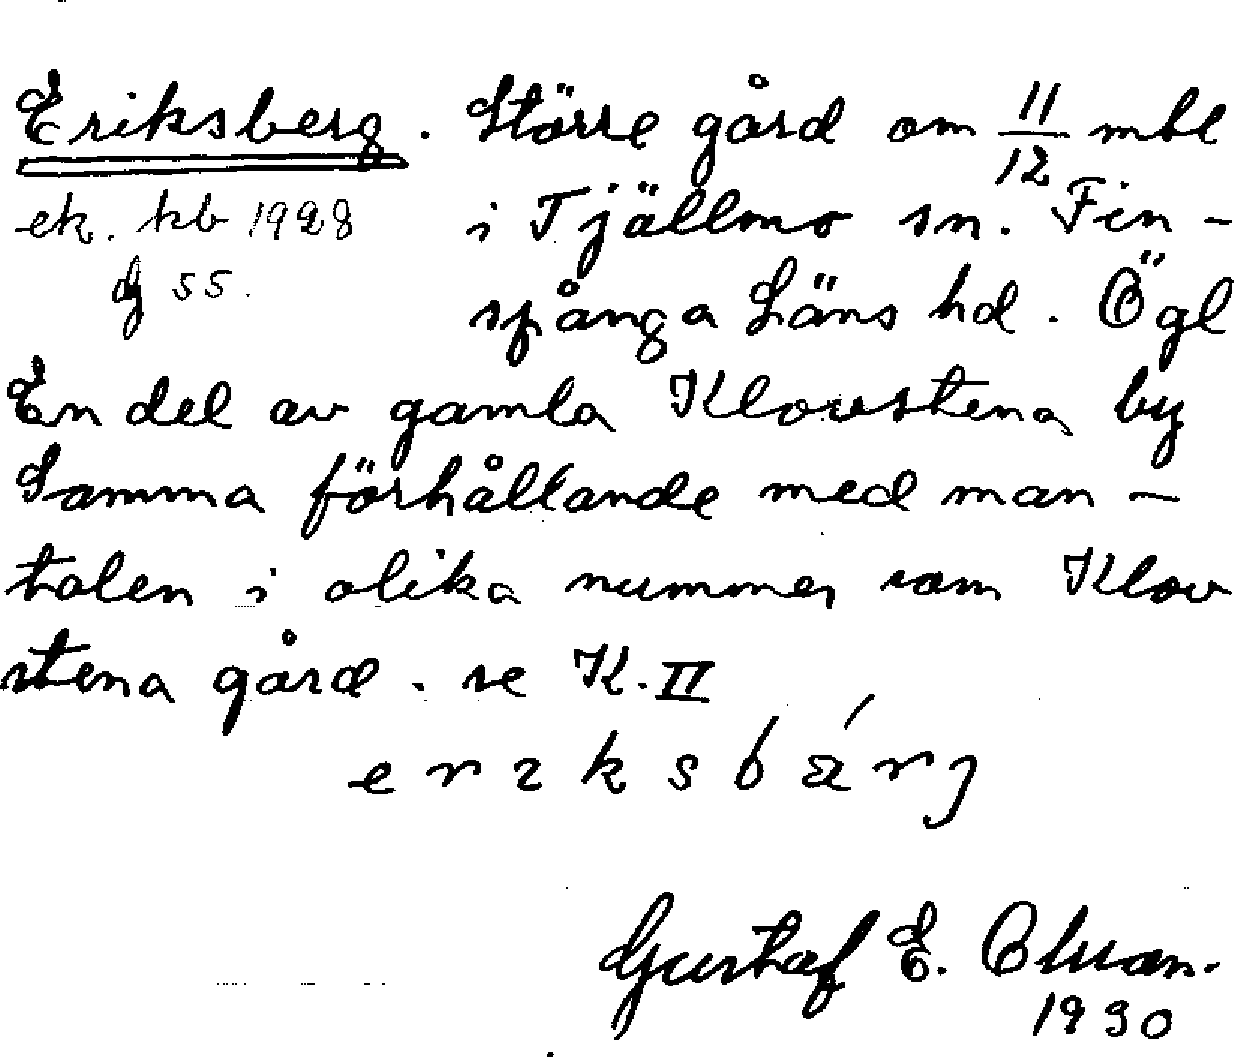 Eriksberg. Större gård om 11/12 mtl
ek. kb 1928 i Tjällmo sn. Fin-
dj 55. spånga Läns hd. Ögl
En del av gamla Klovstena by
Samma förhållande med man-
talen i olika nummer som Klov
stena gård. se K. II
erɩksbǽrj
Gustaf E.
1930